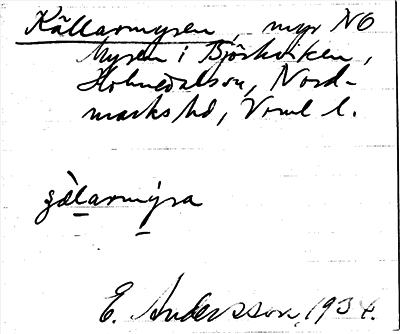 Källarmysen, myr NO
Mysen i Björkviken,
Holmedalson, Nord-
marks hd, Vrml l.
gälarmýra
E. Andersson, 1934.